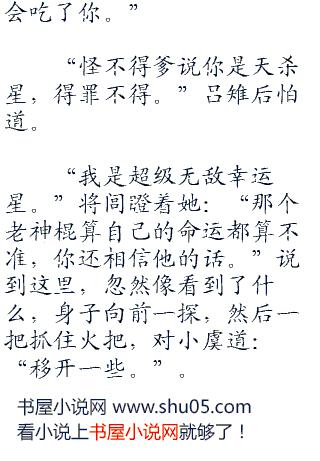 会吃了你。”
“怪不得爹说你是天杀
星，得罪不得。”吕雉后怕
道。
“我是超级无敌幸运
星。”将闾瞪着她：“那个
老神棍算自己的命运都算不
准，你还相信他的话。”说
到这里，忽然像看到了什
么，身子向前一探，然后一
把抓住火把，对小虞道：
“移开一些。”。
书屋小说网 www.shu05.com
看小说上书屋小说网就够了！